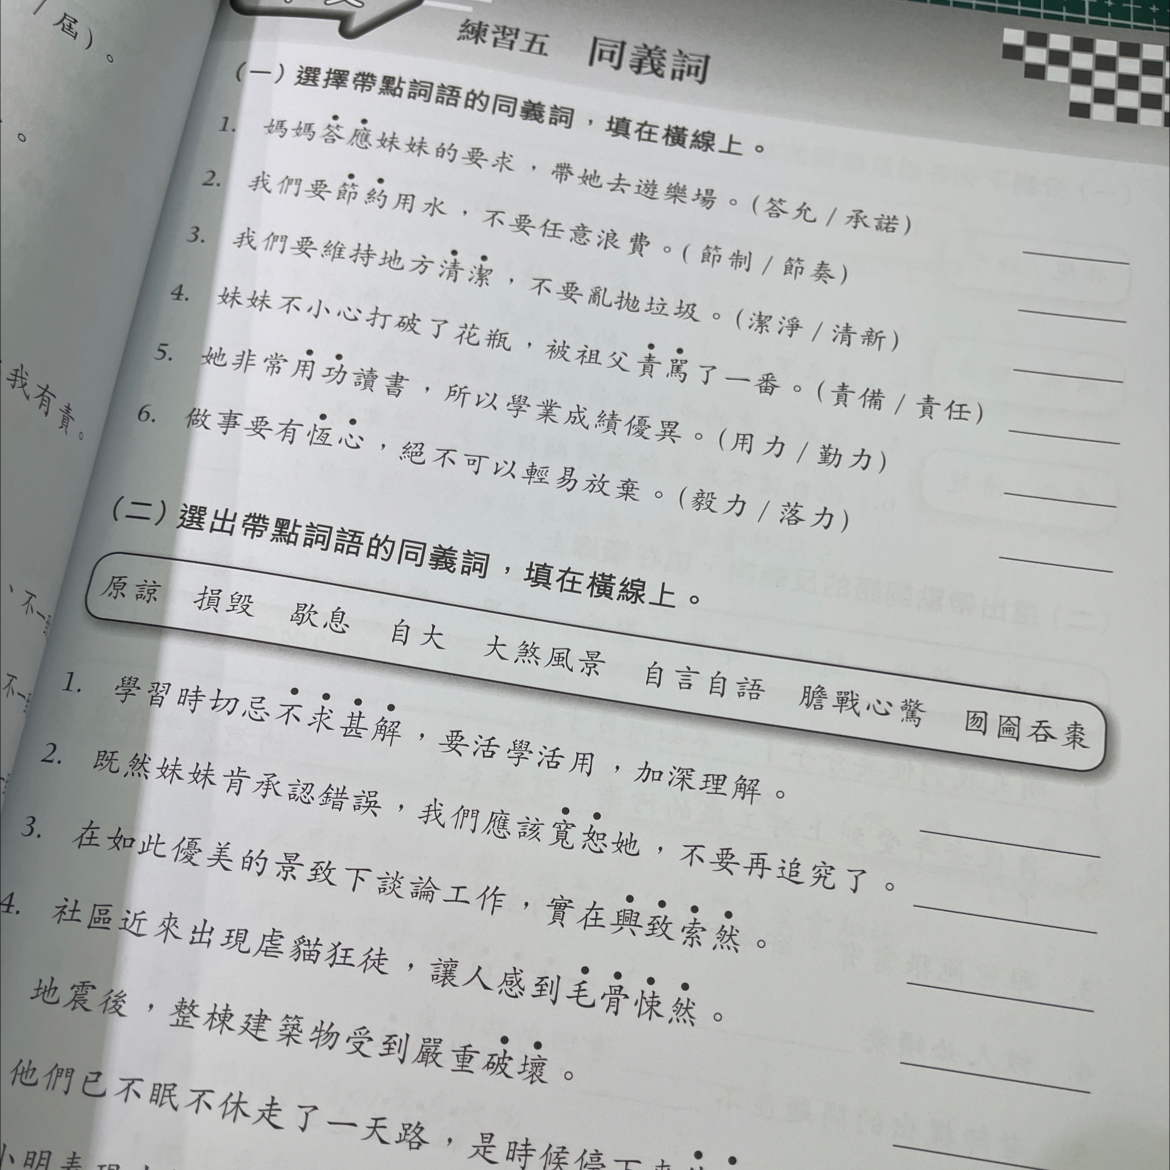 屆)。
。
我有責。
、不一
不一
練習五 同義詞
(一)選擇帶點詞語的同義詞，填在橫線上。
1. 媽媽答應妹妹的要求，帶她去遊樂場。(答允/承諾)
2. 我們要節約用水，不要任意浪費。(節制/節奏)
3. 我們要維持地方清潔，不要亂拋垃圾。(潔淨/清新)
4. 妹妹不小心打破了花瓶，被祖父責罵了一番。(責備/責任)
5. 她非常用功讀書，所以學業成績優異。(用力/勤力)
6. 做事要有恆心，絕不可以輕易放棄。(毅力/落力)
(二)選出帶點詞語的同義詞，填在橫線上。
原諒 損毀 歇息 自大 大煞風景 自言自語 膽戰心驚 囫圇吞棗
1. 學習時切忌不求甚解，要活學活用，加深理解。
2. 既然妹妹肯承認錯誤，我們應該寬恕她，不要再追究了。
3. 在如此優美的景致下談論工作，實在興致索然。
4. 社區近來出現虐貓狂徒，讓人感到毛骨悚然。
地震後，整棟建築物受到嚴重破壞。
他們已不眠不休走了一天路，是時候停下來
小明表現